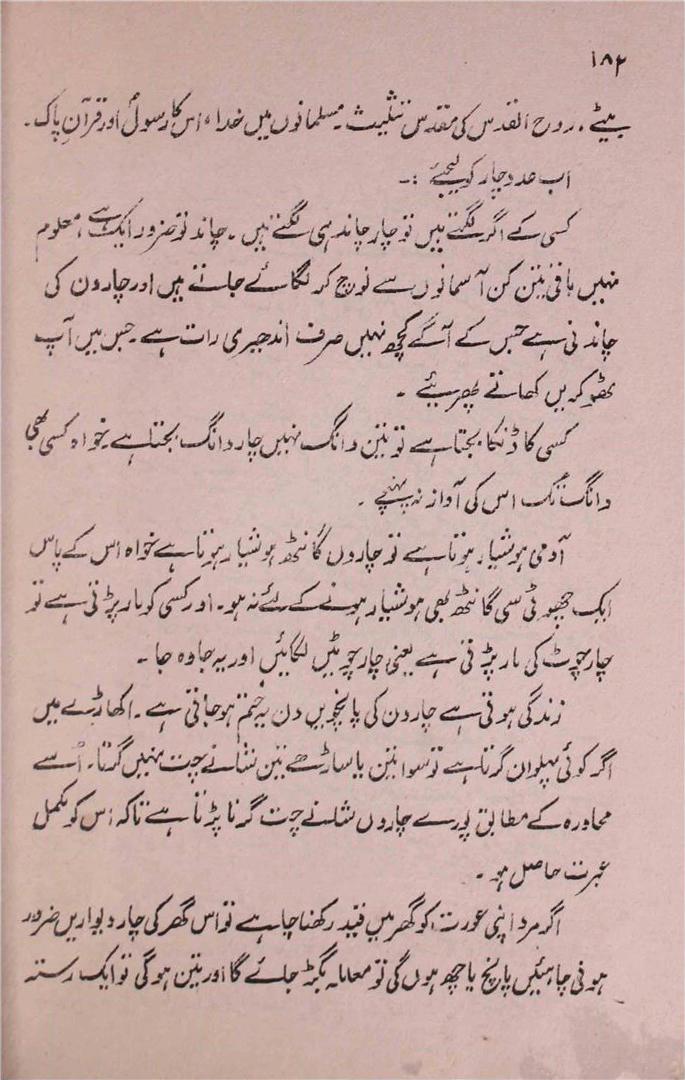 ۱۸۲
بیٹے، روح القدس کی مقدس تثلیث۔ مسلمانوں میں خدا، اس کا رسولؐ اور قرآنِ پاک۔
اب عدد چار کو لیجئے :۔
کسی کے اگر لگتے ہیں تو چار چاند ہی لگتے ہیں۔ چاند تو ضرور ایک ہے، معلوم
نہیں باقی تین کن آسمانوں سے نوچ کر لگائے جاتے ہیں اور چار دن کی
چاندنی ہے جس کے آگے کچھ نہیں صرف اندھیری رات ہے۔ جس میں آپ
ٹھوکریں کھاتے پھریئے ۔
کسی کا ڈنکا بجتا ہے تو تین دانگ نہیں چار دانگ بجتا ہے۔ خواہ کسی بھی
دانگ تک اس کی آواز نہ پہنچے ۔
آدمی ہوشیار ہوتا ہے تو چاروں گانٹھ ہوشیار ہوتا ہے خواہ اس کے پاس
ایک چھوٹی سی گانٹھ بھی ہوشیار ہونے کے لئے نہ ہو۔ اور کسی کو مار پڑتی ہے تو
چار چوٹ کی مار پڑتی ہے یعنی چار چوٹیں لگائیں اور یہ جا وہ جا ۔
زندگی ہوتی ہے چار دن کی پانچویں دن یہ ختم ہو جاتی ہے۔ اکھاڑے میں
اگر کوئی پہلوان گرتا ہے تو سوا تین یا ساڑھے تین شانے چت نہیں گرتا۔ اُسے
محاورہ کے مطابق پورے چاروں شانے چت گرنا پڑتا ہے تاکہ اُس کو مکمل
عبرت حاصل ہو ۔
اگر مرد اپنی عورت کو گھر میں قید رکھنا چاہے تو اس گھر کی چار دیواریں ضرور
ہونی چاہئیں پانچ یا چھ ہوں گی تو معاملہ بگڑ جائے گا اور تین ہوگی تو ایک رستہ